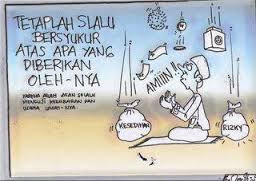 TETAPLAH SLALU
BERSYUKUR
ATAS APA YANG
DIBERIKAN
OLEH-NYA
KARENA ALLAH AKAN SELALU
MENGUJI KESABARAN DAN
UMAT-NYA
AMIIN!!
KESEDIHAN
RIZKY